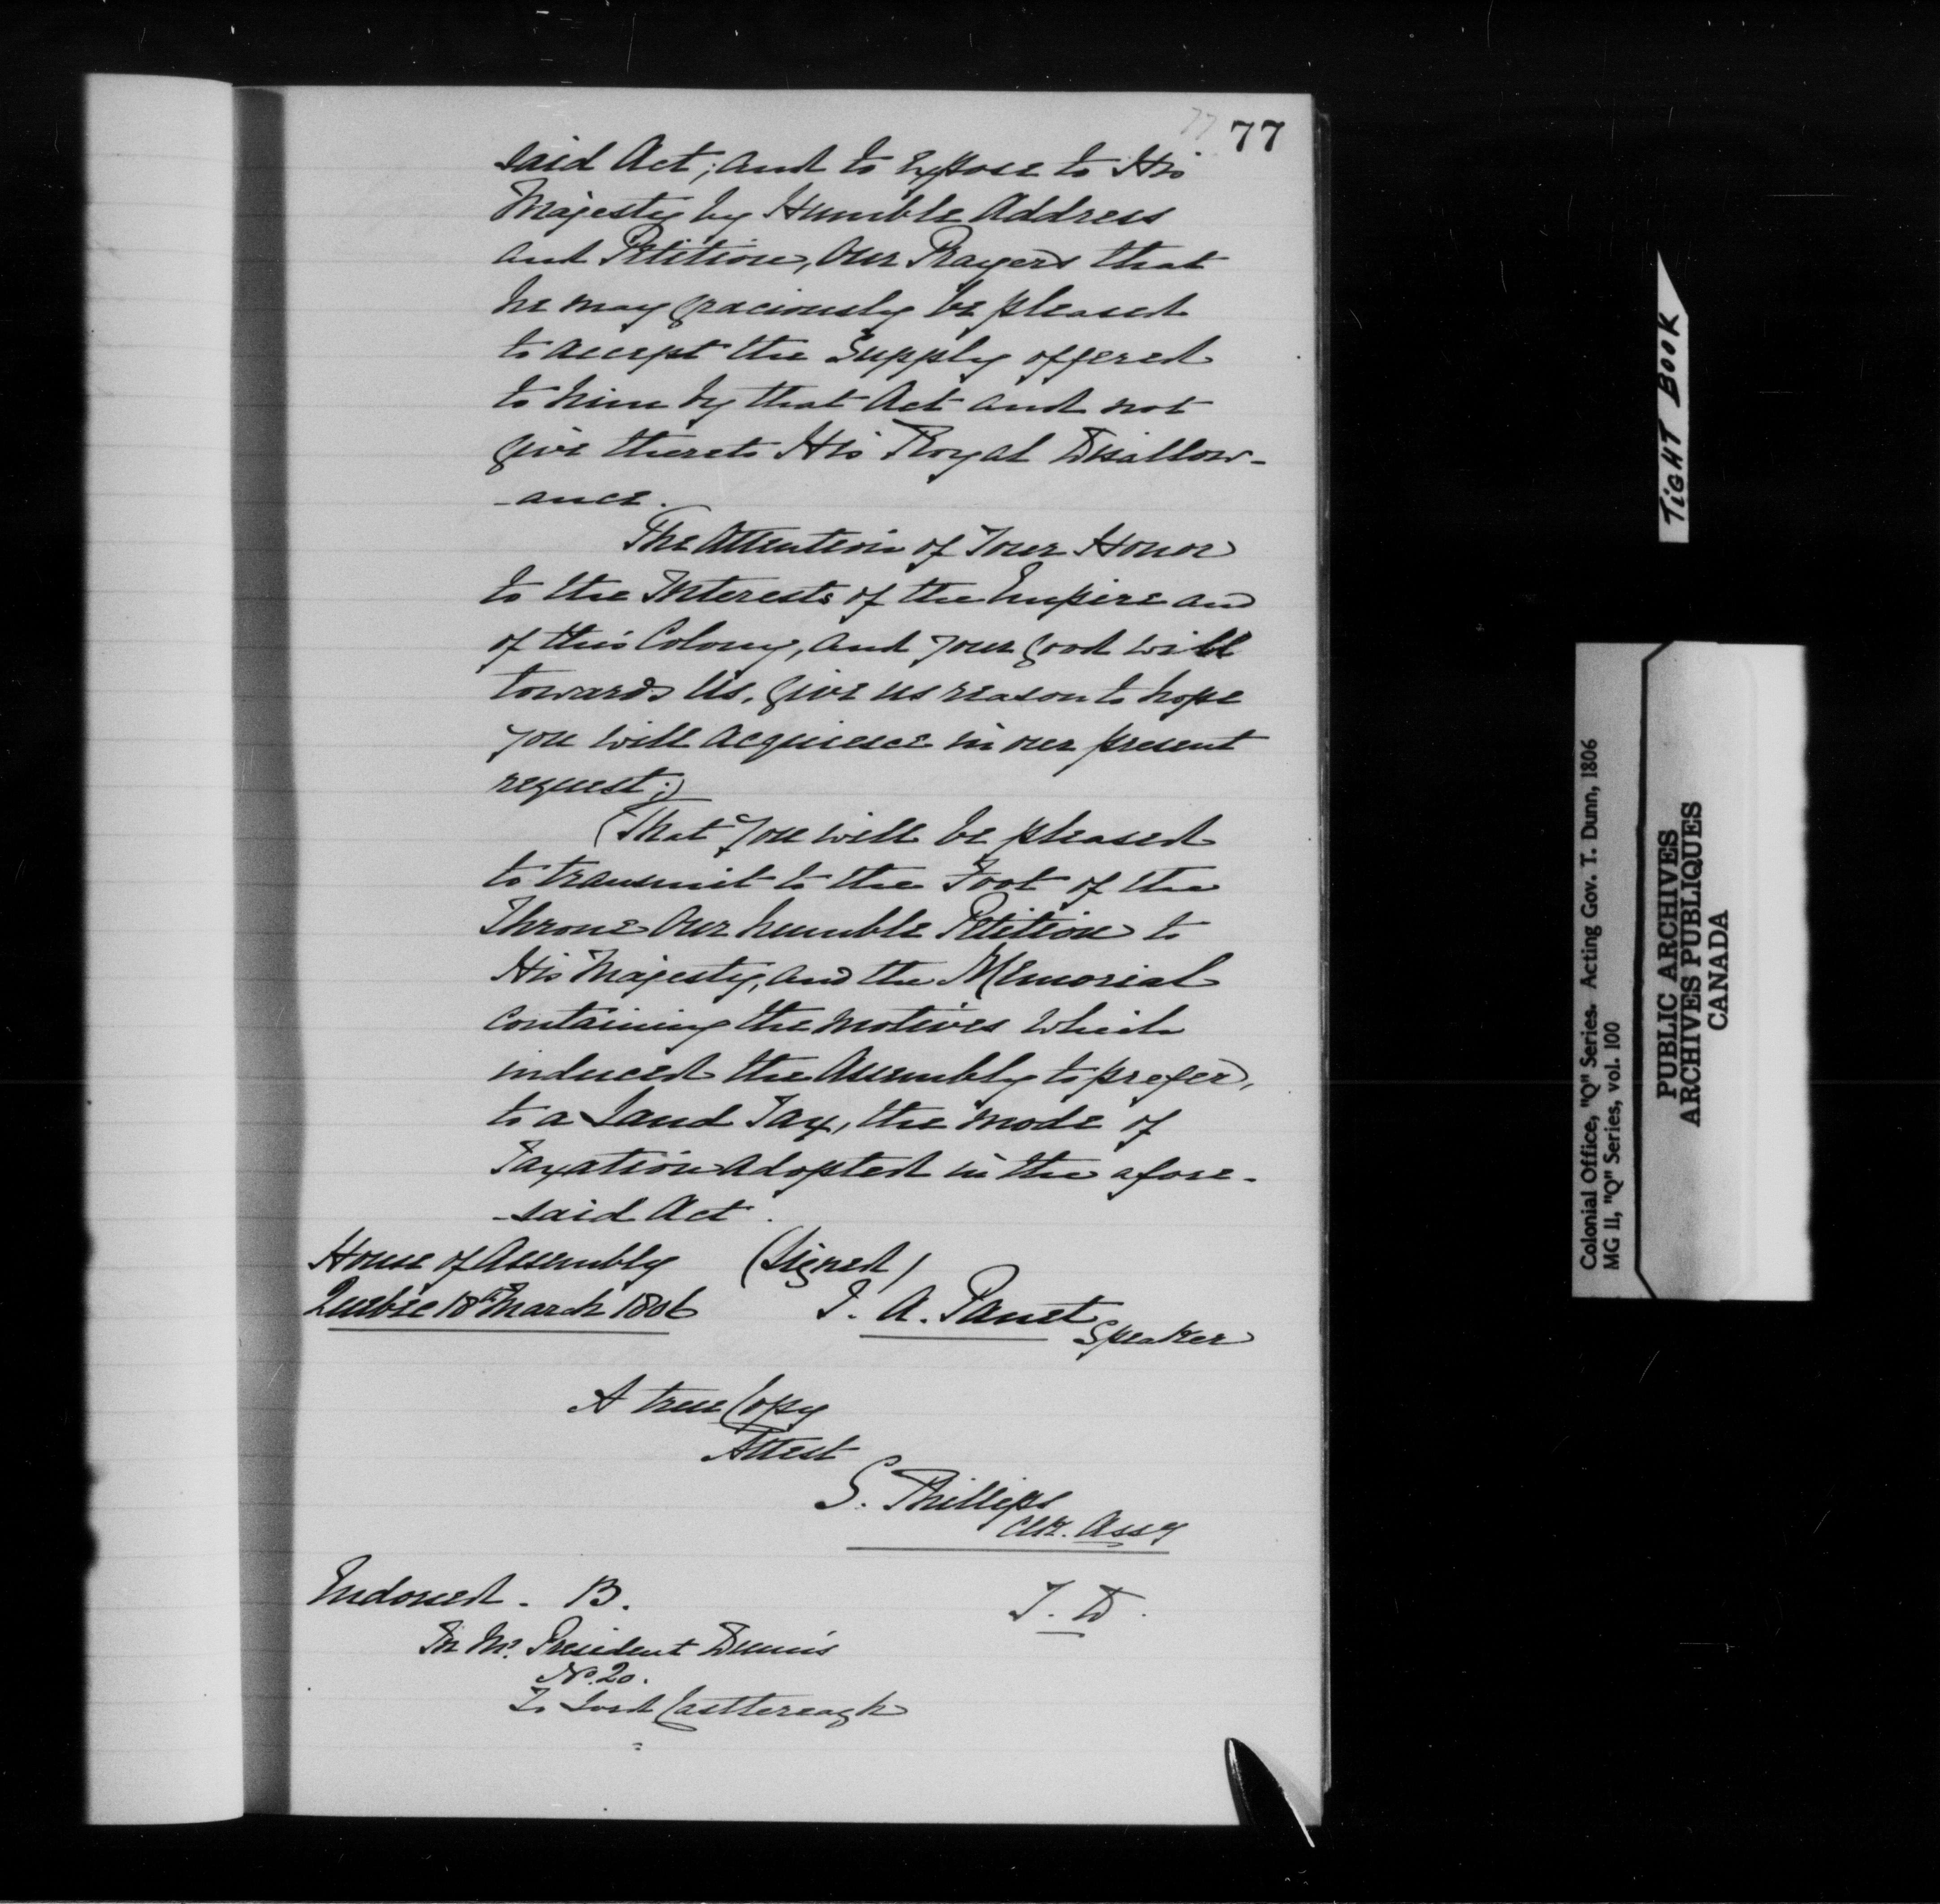 77 77
said Act; and to Expose to His
Majesty by Humble Address
and Petition, Our Prayers that
he may graciously be pleased
to accept the Supply offered
to him by that Act and not
give thereto His Royal Disallow-
-ance.
The Attention of Your Honor
to the Interests of the Empire and
of this Colony, and your good will
towards Us, give us reason to hope
you will acquiesce in our present
request;)
(That you will be pleased
to transmit to the Foot of the
Throne Our humble Petition to
His Majesty, and the Memorial
containing the motives which
induced the Assembly to prefer,
to a Land Tax, the mode of
Taxation adopted in the afore-
-said Act.
House of Assembly (Signed)
Quebec 18th March 1806 J. A. Panet
Speaker
A true Copy
Attest
S. Phillips
Clk. Assy
Endorsed. B. T. D.
In Mr. President Dunn's
No. 20.
To Lord Castlereagh
TIGHT BOOK
Colonial Office, "Q" Series. Acting Gov. T. Dunn, 1806
MG 11, "Q" Series, vol. 100
PUBLIC ARCHIVES
ARCHIVES PUBLIQUES
CANADA